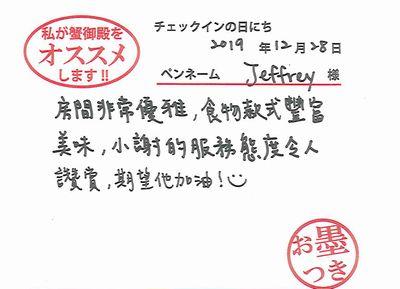 私が蟹御殿を
オススメ
します!!
チェックインの日にち
2019 年 12 月 28 日
ペンネーム Jeffrey 様
房間非常優雅，食物款式豐富
美味，小謝的服務態度令人
讚賞，期望他加油！
お墨
つき